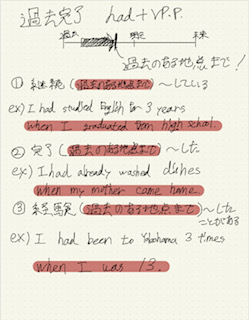 過去完了 had + VP.P.
過去 現在 未来
過去のある地点まで!
① 継続 (過去のある地点まで) 〜している
ex) I had studied English for 3 years
when I graduated from high school
② 完了 (過去のある地点まで) 〜した
ex) I had already washed dishes
when my mother came home.
③ 経験 (過去のある地点まで) 〜した
ことがある
ex) I had been to Yokohama 3 times
when I was 13.